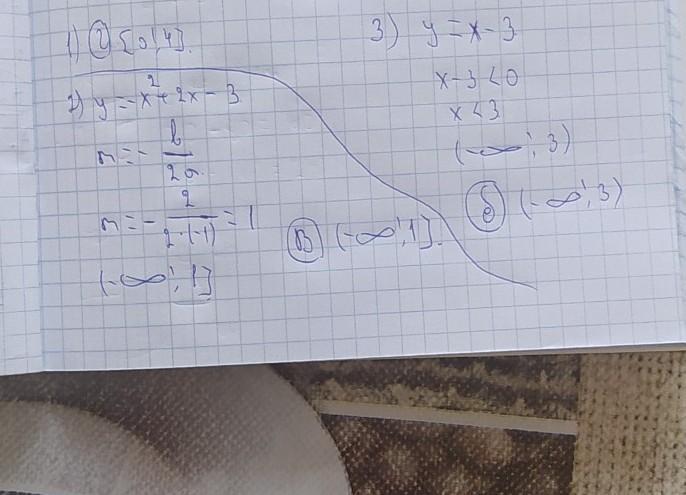 1) г) [0; 4].
2) y = -x² + 2x - 3
m = - b/2a
m = - 2/2·(-1) = 1
(-∞; 1]
в) (-∞; 1].
3) y = x - 3
x - 3 < 0
x < 3
(-∞; 3)
б) (-∞; 3)